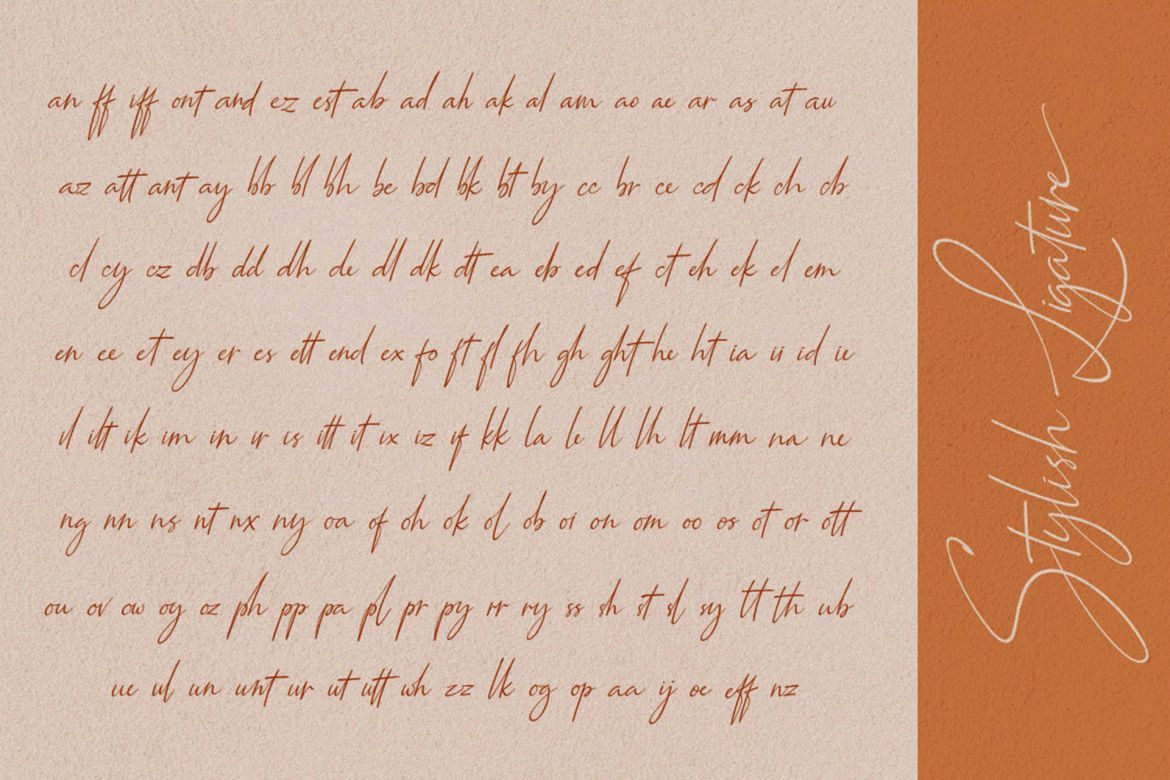 an ff iff ont and ez est ab ad ah ak al am ao ae ar as at au
az att ant ay bb bl bh be bd bk bt by cc br ce cd ck ch cb
cl cy cz db dd dh de dl dk dt ea eb ed ef ct eh ek el em
en ee et ey er es ett end ex fo ft fl fh gh ght he ht ia ii id ie
il ilt ik im in ir is itt it ix iz if kk la le ll lh lt mm na ne
ng nn ns nt nx ny oa of oh ok ol ob oi on om oo os ot or ott
ou ov ow oy oz ph pp pa pl pr py rr ry ss sh st sl sy tt th ub
ue ul un unt ur ut utt wh zz lk og op aa ij oe eff nz
Stylish Ligature